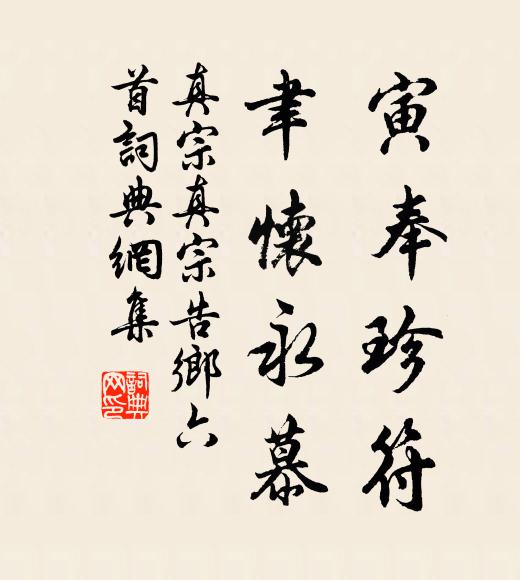 寅奉珍符
聿懷永慕
真宗真宗告鄉六
首詞典網集
詞典
网印